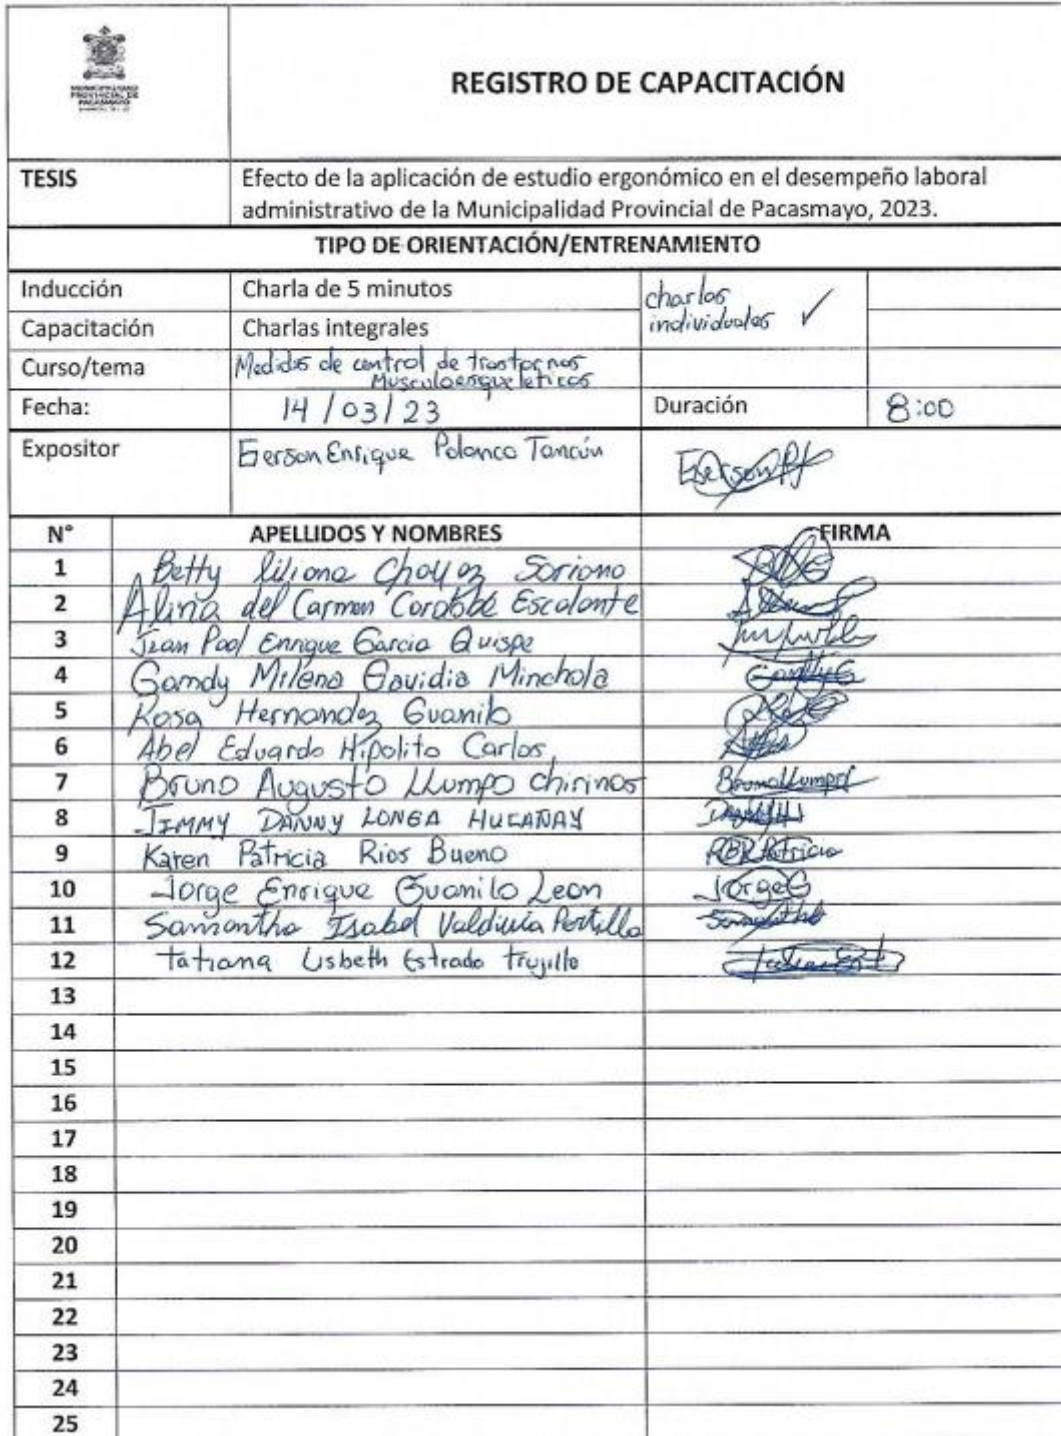 MUNICIPALIDAD
PROVINCIAL DE
PACASMAYO
REGISTRO DE CAPACITACIÓN
TESIS
Efecto de la aplicación de estudio ergonómico en el desempeño laboral
administrativo de la Municipalidad Provincial de Pacasmayo, 2023.
TIPO DE ORIENTACIÓN/ENTRENAMIENTO
Inducción Charla de 5 minutos
charlas
individuales ✓
Capacitación Charlas integrales
Curso/tema Medidas de control de trastornos
Musculoesqueleticos
Fecha: 14/03/23 Duración 8:00
Expositor Gerson Enrique Polanco Tancún
N° APELLIDOS Y NOMBRES FIRMA
1 Betty Liliana Chavez Soriano
2 Alina del Carmen Escalante
3 Jean Pool Enrique Garcia Quispe
4 Gamdy Milena Gavidia Minchola
5 Rosa Hernandez Guanilo
6 Abel Eduardo Hipolito Carlos
7 Bruno Augusto LLumpo Chirinos BrunoLlumpo
8 JIMMY DANNY LONGA HUCAÑAY
9 Karen Patricia Rios Bueno Patricia
10 Jorge Enrique Guanilo Leon JorgeG
11 Samantha Isabel Valdivia Portilla Samantha
12 Tatiana Lisbeth Estrada Trujillo
13
14
15
16
17
18
19
20
21
22
23
24
25